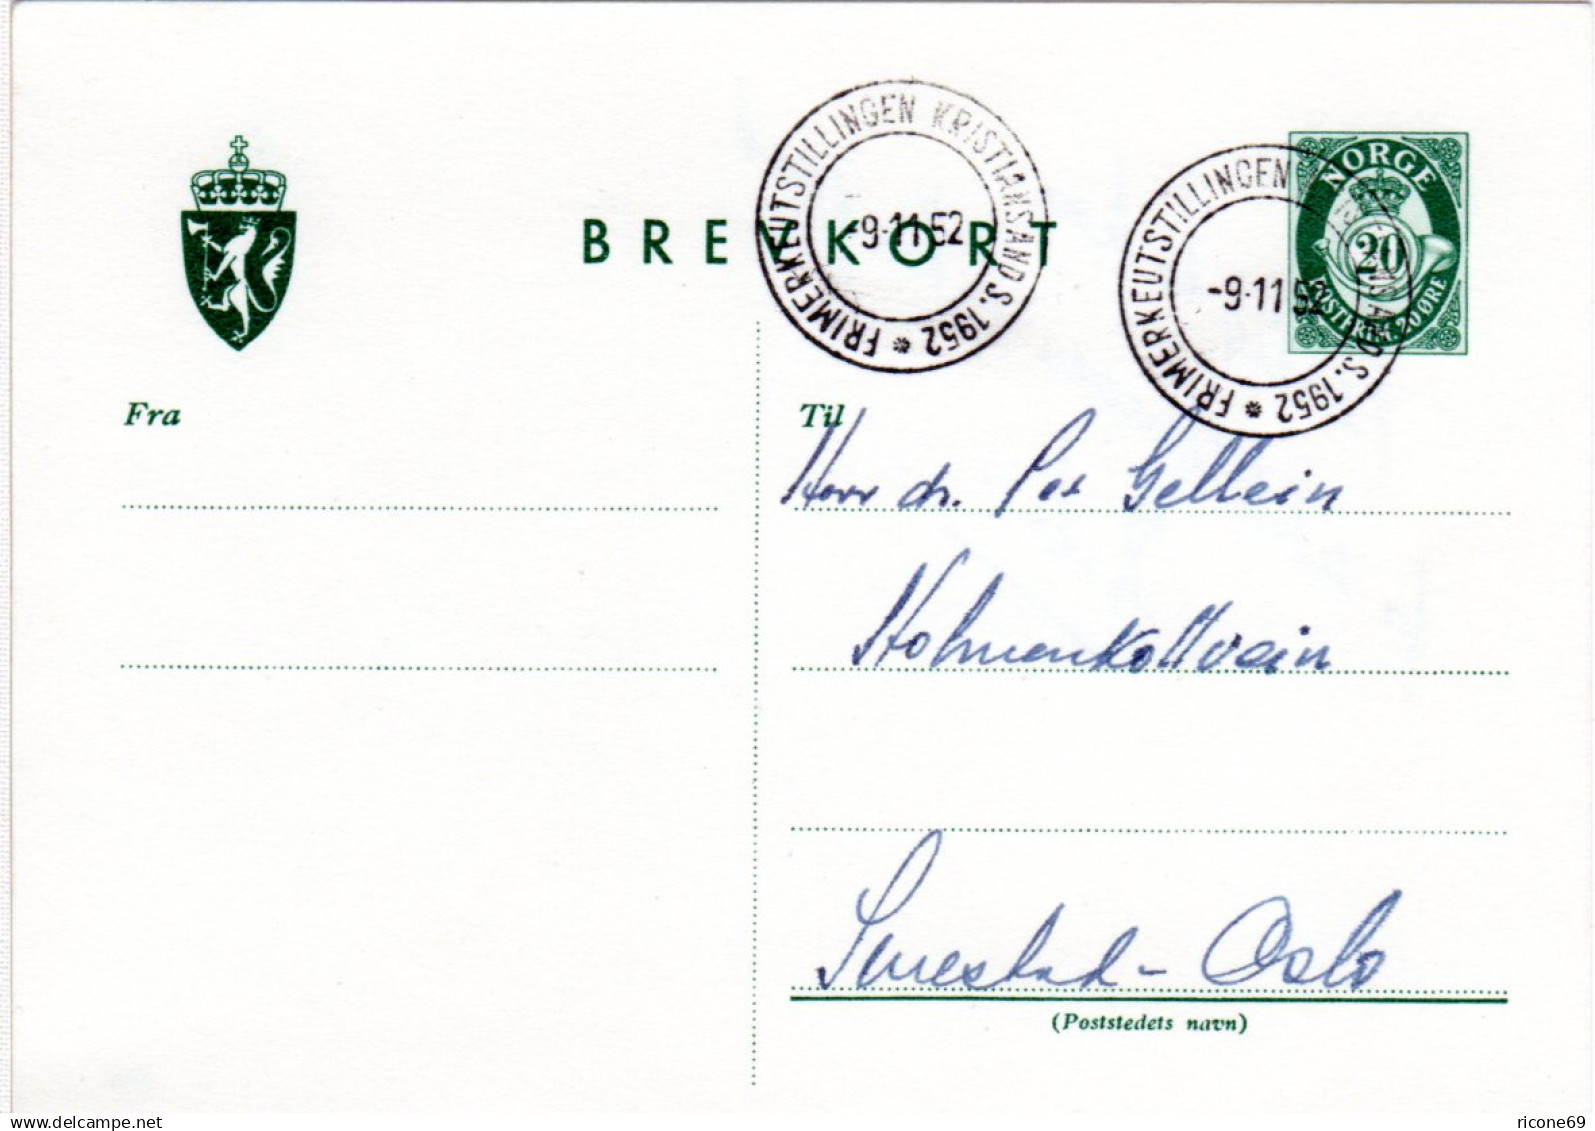 FRIMERKEUTSTILLINGEN KRISTIANSAND S. 1952 *
-9-11 52
FRIMERKEUTSTILLINGEN KRISTIANSAND S. 1952 *
-9-11 52
NORGE
20
POSTFRIM. 20 ØRE
BREVKORT
Fra
Til
Herr dr. Per Gellein
Holmenkollvein
Smestad - Oslo
(Poststedets navn)
www.delcampe.net
ricone69